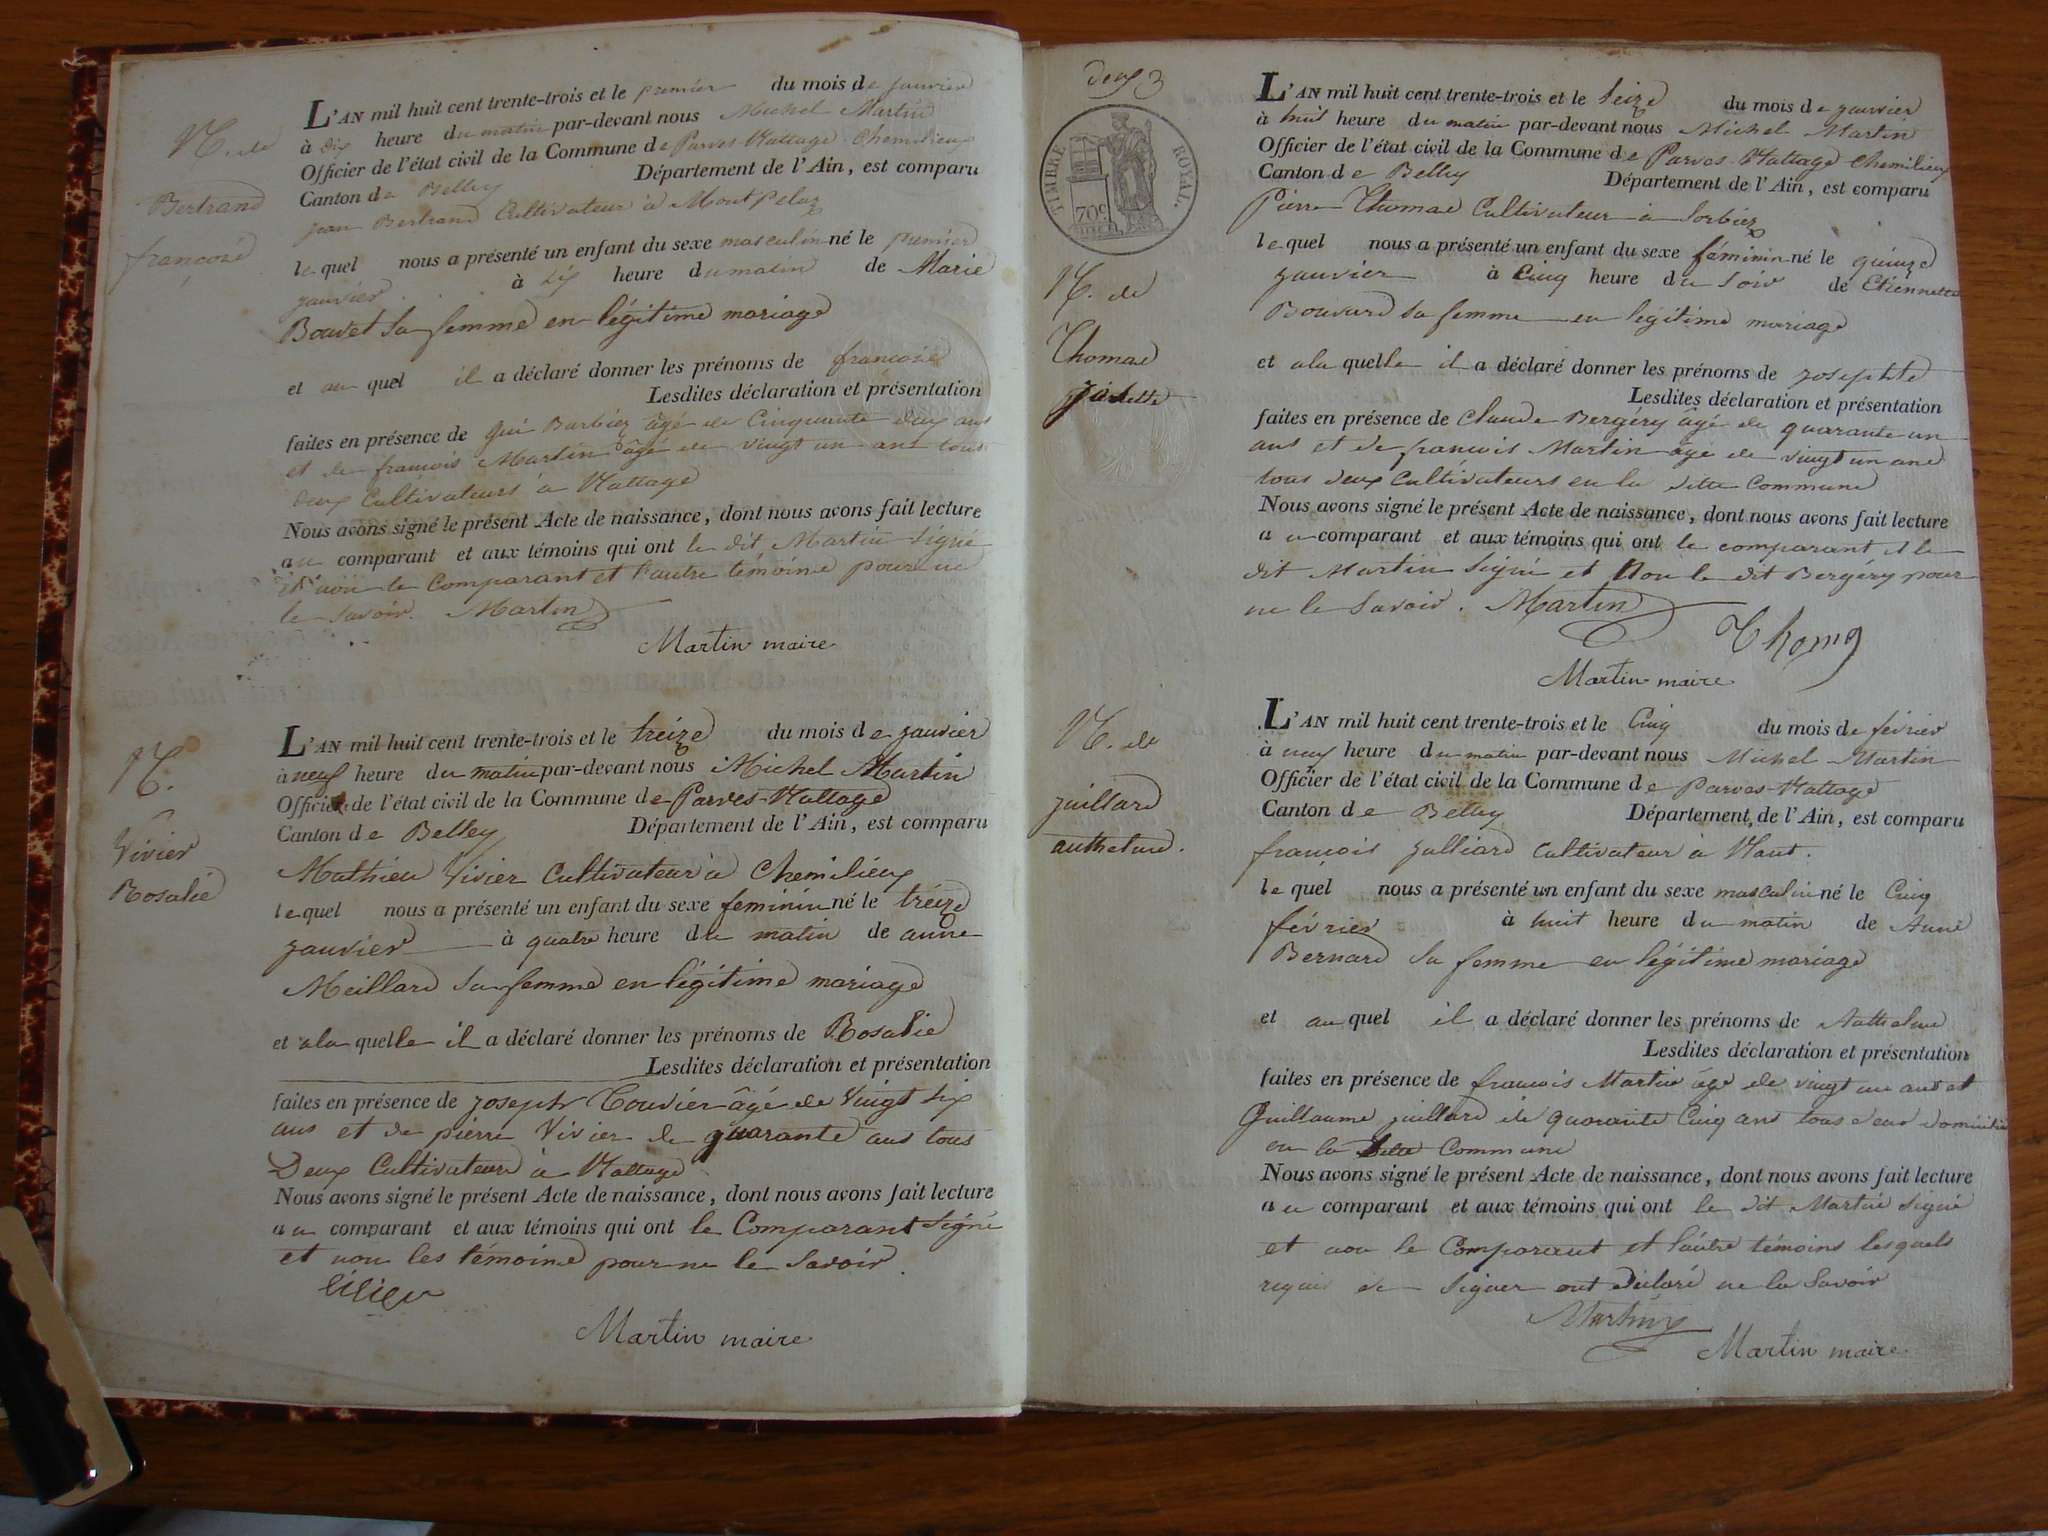 N. de
Bertrand
françoise
L'AN mil huit cent trente-trois et le premier du mois de janvier
à dix heure du matin par-devant nous Michel Martin
Officier de l'état civil de la Commune de Parves-Nattage Chemilieux
Canton de Belley Département de l'Ain, est comparu
jean Bertrand Cultivateur à Mont Pelaz
le quel nous a présenté un enfant du sexe masculin né le premier
janvier à six heure du matin de Marie
Bouvet sa femme en légitime mariage
et au quel il a déclaré donner les prénoms de
Lesdites déclaration et présentation
faites en présence de gui Barbiez âgé de Cinquante deux ans
et de francois Martin âgé de vingt un ans tous
deux Cultivateurs à Nattage
Nous avons signé le présent Acte de naissance, dont nous avons fait lecture
au comparant et aux témoins qui ont le dit Martin signé
et non le Comparant et l'autre témoins pour ne
le savoir. Martin
Martin maire
N.
Vivier
Rosalie
L'AN mil huit cent trente-trois et le treize du mois de janvier
à neuf heure du matin par-devant nous Michel Martin
Officier de l'état civil de la Commune de Parves-Nattage
Canton de Belley Département de l'Ain, est comparu
Mathieu Vivier Cultivateur à Chemilieux
le quel nous a présenté un enfant du sexe feminin né le treize
janvier à quatre heure du matin de anne
Meillard sa femme en légitime mariage
et a la quelle il a déclaré donner les prénoms de Rosalie
Lesdites déclaration et présentation
faites en présence de joseph Touvier âgé de Vingt six
ans et de pierre Vivier de quarante ans tous
Deux Cultivateurs à Nattage
Nous avons signé le présent Acte de naissance, dont nous avons fait lecture
au comparant et aux témoins qui ont le Comparant signé
et non les témoins pour ne le Savoir.
Martin maire
TIMBRE ROYAL.
70c
N. de
Thomas
L'AN mil huit cent trente-trois et le seize du mois de janvier
à huit heure du matin par-devant nous Michel Martin
Officier de l'état civil de la Commune de Parves-Nattage Chemilieux
Canton de Belley Département de l'Ain, est comparu
Pierre Thomas Cultivateur à Sorbiez
le quel nous a présenté un enfant du sexe féminin né le quinze
janvier à Cinq heure du Soir de Etiennette
Bouvard sa femme en légitime mariage
et a la quelle il a déclaré donner les prénoms de josephte
Lesdites déclaration et présentation
faites en présence de Claude Bergéry âgé de quarante un
ans et de francois Martin âgé de vingt un ans
tous deux Cultivateurs en la ditte Commune
Nous avons signé le présent Acte de naissance, dont nous avons fait lecture
au comparant et aux témoins qui ont le comparant et le
dit Martin signé et Non le dit Bergéry pour
ne le Savoir. Martin
Thoma
Martin maire
N. de
juillard
anthelme.
L'AN mil huit cent trente-trois et le Cinq du mois de février
à neuf heure du matin par-devant nous Michel Martin
Officier de l'état civil de la Commune de Parves-Nattage
Canton de Belley Département de l'Ain, est comparu
francois julliard Cultivateur à Nant.
le quel nous a présenté un enfant du sexe masculin né le Cinq
février à huit heure du matin de Anne
Bernard sa femme en légitime mariage
et au quel il a déclaré donner les prénoms de Anthelme
Lesdites déclaration et présentation
faites en présence de francois Martin âgé de vingt un ans et
Guillaume juillard de quarante Cinq ans tous deux
en la ditte Commune
Nous avons signé le présent Acte de naissance, dont nous avons fait lecture
au comparant et aux témoins qui ont le dit Martin signé
et non le Comparant et l'autre témoins lesquels
requis de signer ont déclaré ne la Savoir
Martin
Martin maire